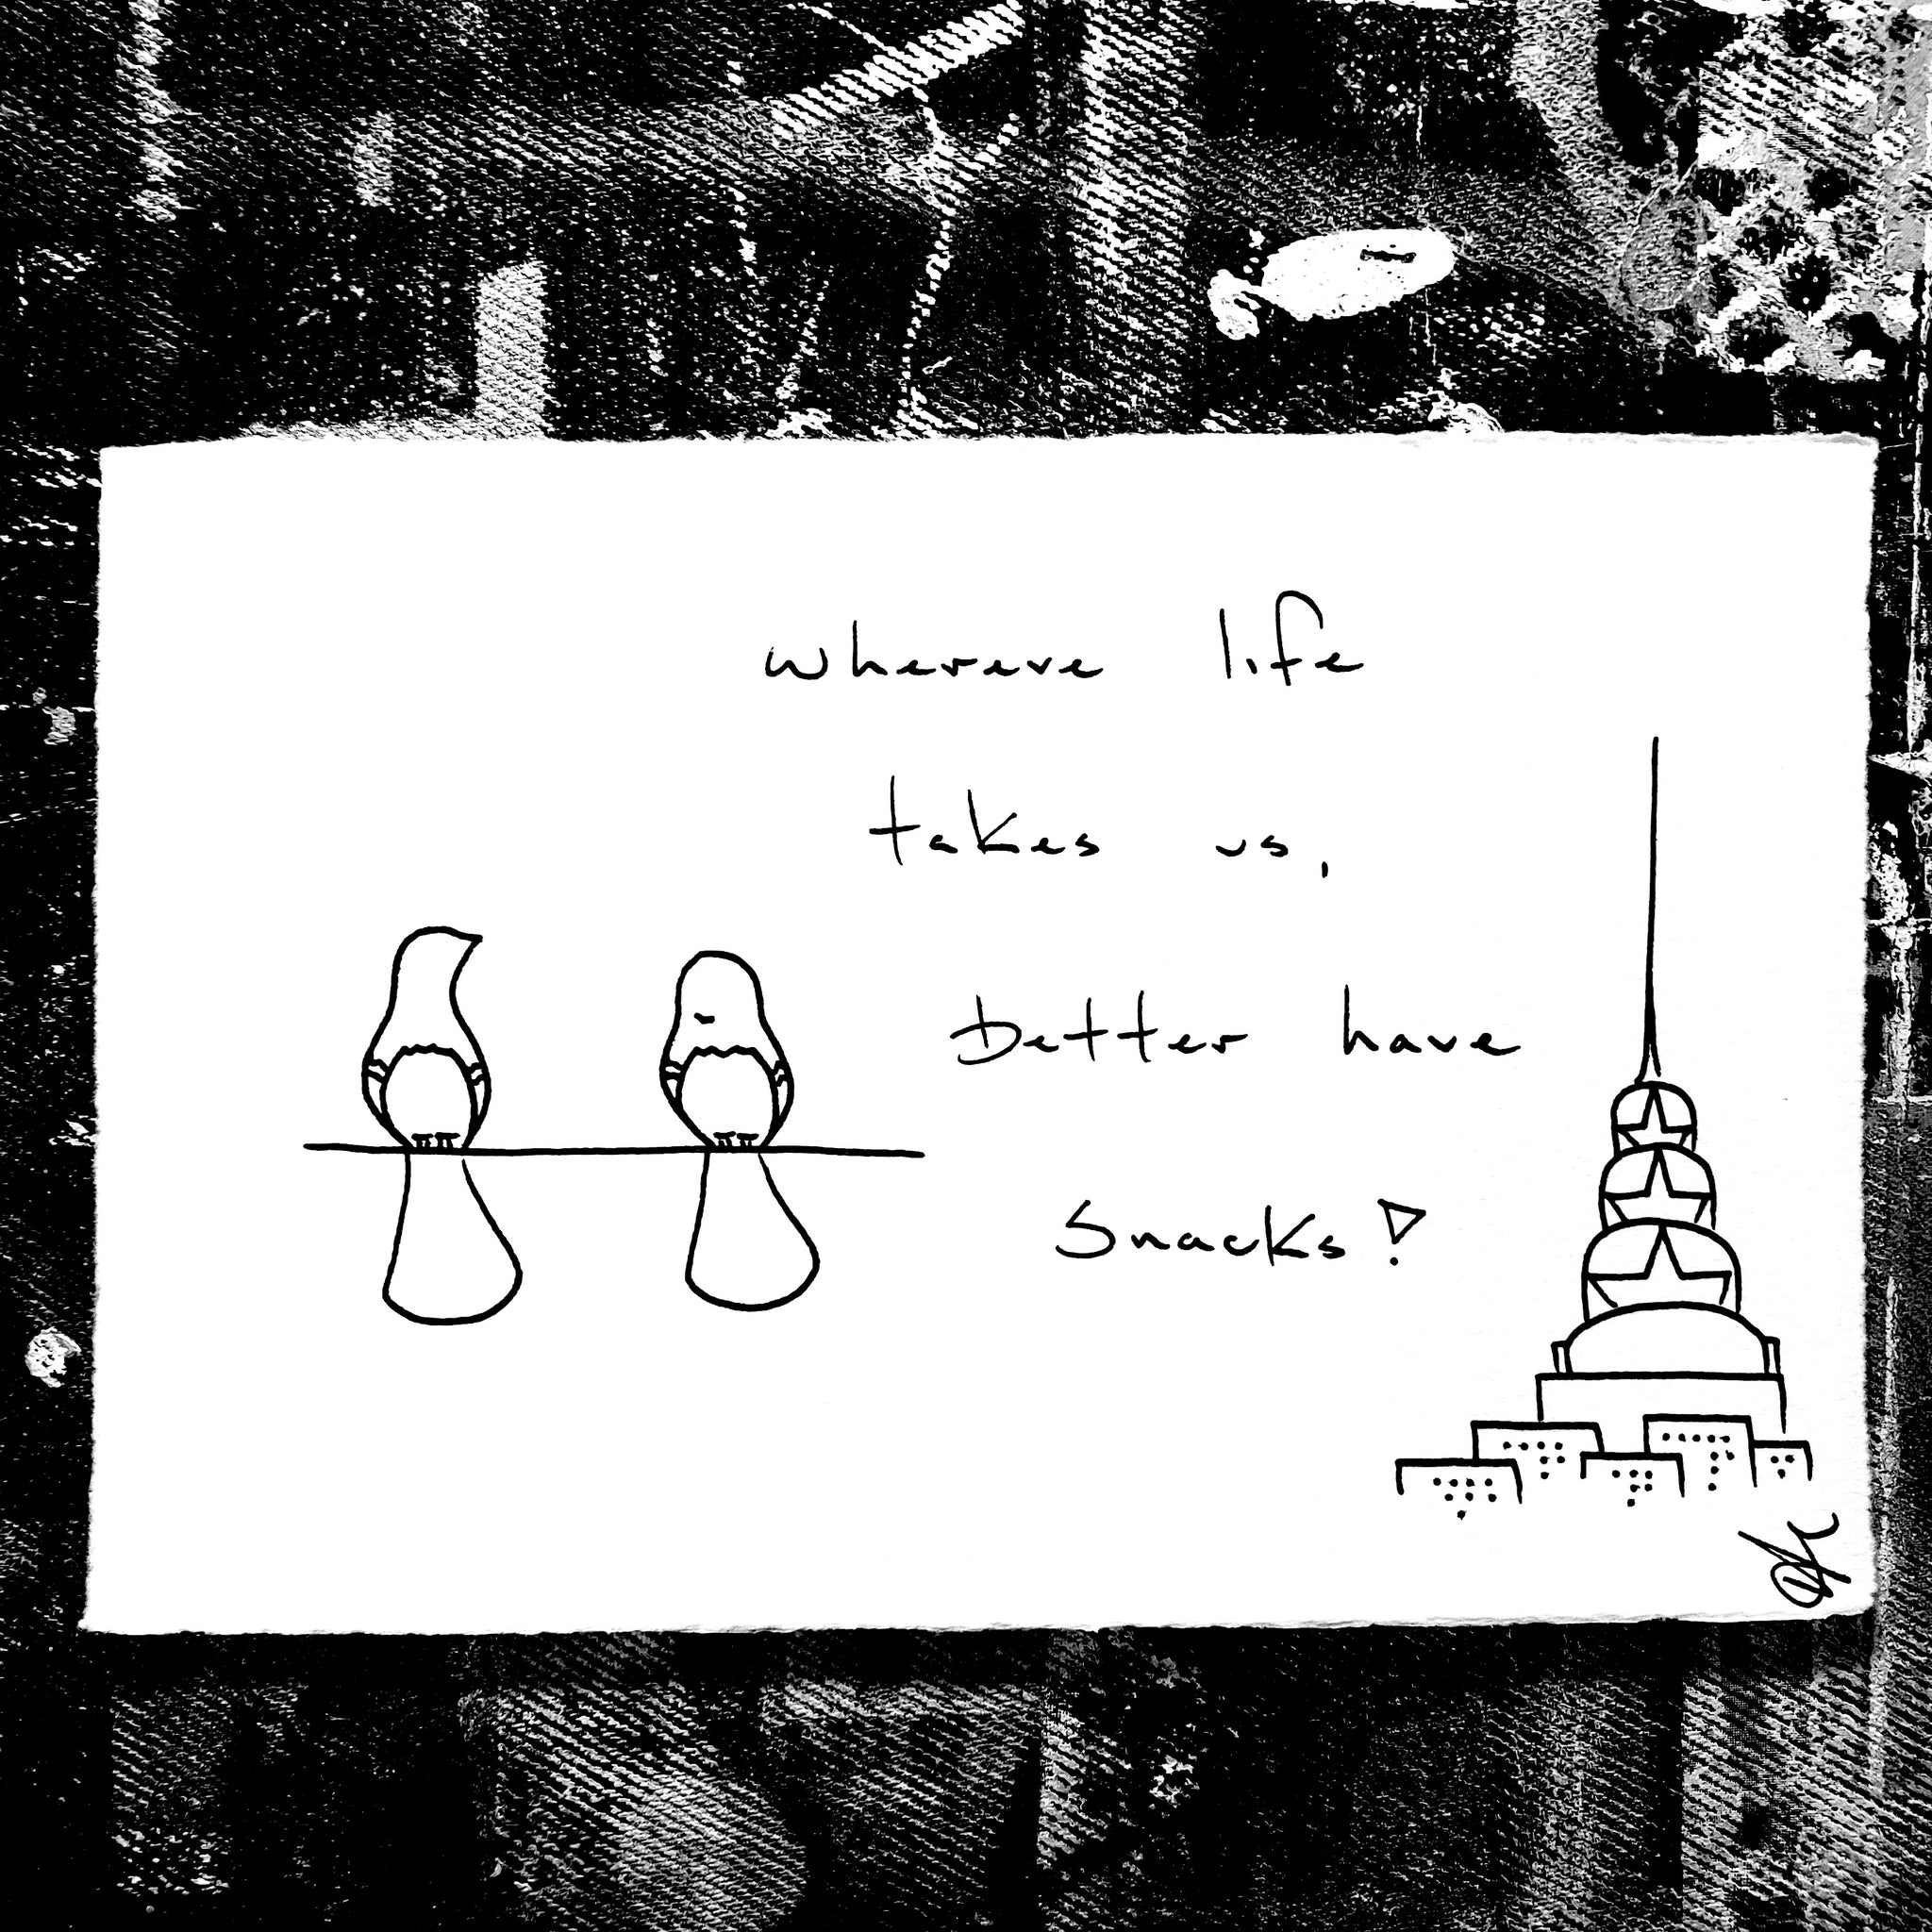 whereve life
takes us,
better have
snacks!